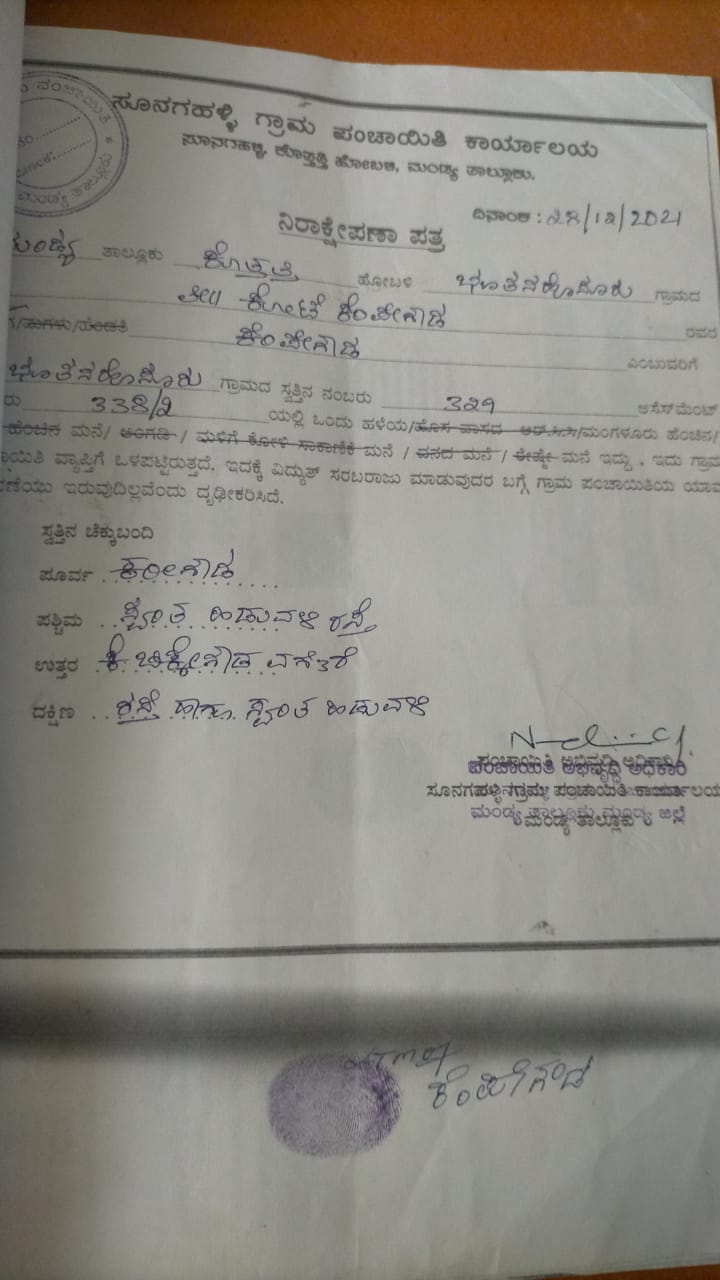 ಪಂಚಾಯಿತಿ *
ಮಂಡ್ಯ ತಾಲ್ಲೂಕು
ಸೂನಗಹಳ್ಳಿ ಗ್ರಾಮ ಪಂಚಾಯಿತಿ ಕಾರ್ಯಾಲಯ
ಸೂನಗಹಳ್ಳಿ, ಕೊತ್ತತ್ತಿ ಹೋಬಳಿ, ಮಂಡ್ಯ ತಾಲ್ಲೂಕು.
ದಿನಾಂಕ : 28/12/2021
ನಿರಾಕ್ಷೇಪಣಾ ಪತ್ರ
ಮಂಡ್ಯ ತಾಲ್ಲೂಕು ಕೊತ್ತತ್ತಿ ಹೋಬಳಿ ಭೂತನಹೊಸೂರು ಗ್ರಾಮದ
ಕೋಟೆ ಕೆಂಪೇಗೌಡ ರವರ
/ಮಗಳು/ಹೆಂಡತಿ ಕೆಂಪೇಗೌಡ ಎಂಬುವರಿಗೆ
ಭೂತನಹೊಸೂರು ಗ್ರಾಮದ ಸ್ವತ್ತಿನ ನಂಬರು 329 ಅಸೆಸ್‌ಮೆಂಟ್
ರು 338/2 ಯಲ್ಲಿ ಒಂದು ಹಳೆಯ/ಹೊಸ ವಾಸದ ಆರ್.ಸಿ.ಸಿ/ಮಂಗಳೂರು ಹೆಂಚಿನ/
ಹೆಂಚಿನ ಮನೆ/ ಅಂಗಡಿ / ಮಳಿಗೆ ಕೋಳಿ ಸಾಕಾಣಿಕೆ ಮನೆ / ದನದ ಮನೆ / ರೇಷ್ಮೇ ಮನೆ ಇದ್ದು , ಇದು ಗ್ರಾಮ
ಾಯಿತಿ ವ್ಯಾಪ್ತಿಗೆ ಒಳಪಟ್ಟಿರುತ್ತದೆ. ಇದಕ್ಕೆ ವಿದ್ಯುತ್ ಸರಬರಾಜು ಮಾಡುವುದರ ಬಗ್ಗೆ ಗ್ರಾಮ ಪಂಚಾಯಿತಿಯ ಯಾವ
ಣೆಯು ಇರುವುದಿಲ್ಲವೆಂದು ದೃಢೀಕರಿಸಿದೆ.
ಸ್ವತ್ತಿನ ಚೆಕ್ಕುಬಂದಿ
ಪೂರ್ವ ಕರೀಗೌಡ
ಪಶ್ಚಿಮ ಸ್ವಂತ ಹಿಡುವಳಿ ರಸ್ತೆ
ಉತ್ತರ ಕೆ ಚಿಕ್ಕೇಗೌಡ ವಗೈರೆ
ದಕ್ಷಿಣ ರಸ್ತೆ ಹಾಗೂ ಸ್ವಂತ ಹಿಡುವಳಿ
ಪಂಚಾಯಿತಿ ಅಭಿವೃದ್ಧಿ ಅಧಿಕಾರಿ
ಸೂನಗಹಳ್ಳಿ ಗ್ರಾಮ ಪಂಚಾಯಿತಿ ಕಾರ್ಯಾಲಯ
ಮಂಡ್ಯ ತಾಲ್ಲೂಕು ಮಂಡ್ಯ ಜಿಲ್ಲೆ
ಕೆಂಪೇಗೌಡ